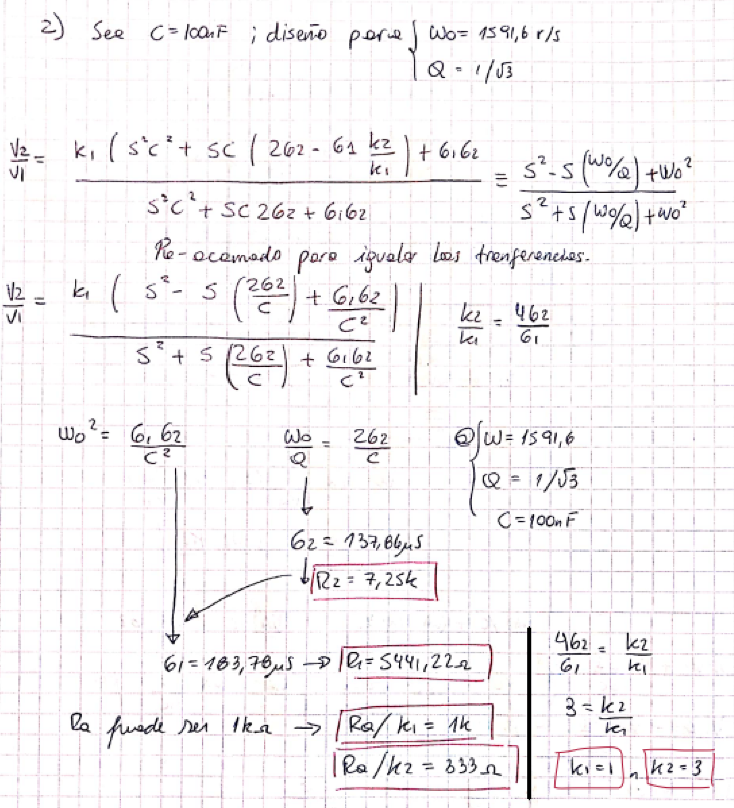 2) See C=100nF ; diseño para { ω₀= 1591,6 r/s
Q = 1/√3
V2/V1 = k₁ ( s²c² + sc ( 2G2 - G1 k2/k₁ ) + G₁G2 / s²c² + sc 2G2 + G₁G2 ≡ s² - s (ω₀/Q) + ω₀² / s² + s (ω₀/Q) + ω₀²
Re-acomodo para igualar las tranferencias.
V2/V1 = k₁ ( s² - s (2G2/c) + G₁G2/c² ) / s² + s (2G2/c) + G₁G2/c² | k2/k₁ = 4G2/G₁
ω₀² = G₁G2/c² ω₀/Q = 2G2/c @ { ω = 1591,6
Q = 1/√3
C = 100nF
G2 = 137,86μS
R2 = 7,25k
G₁ = 183,78μS → R₁ = 5441,22Ω
4G2/G₁ = k2/k₁
Ra puede ser 1kΩ → Ra/k₁ = 1k
3 = k2/k₁
Ra/k2 = 333Ω
k₁=1 ∧ k2=3